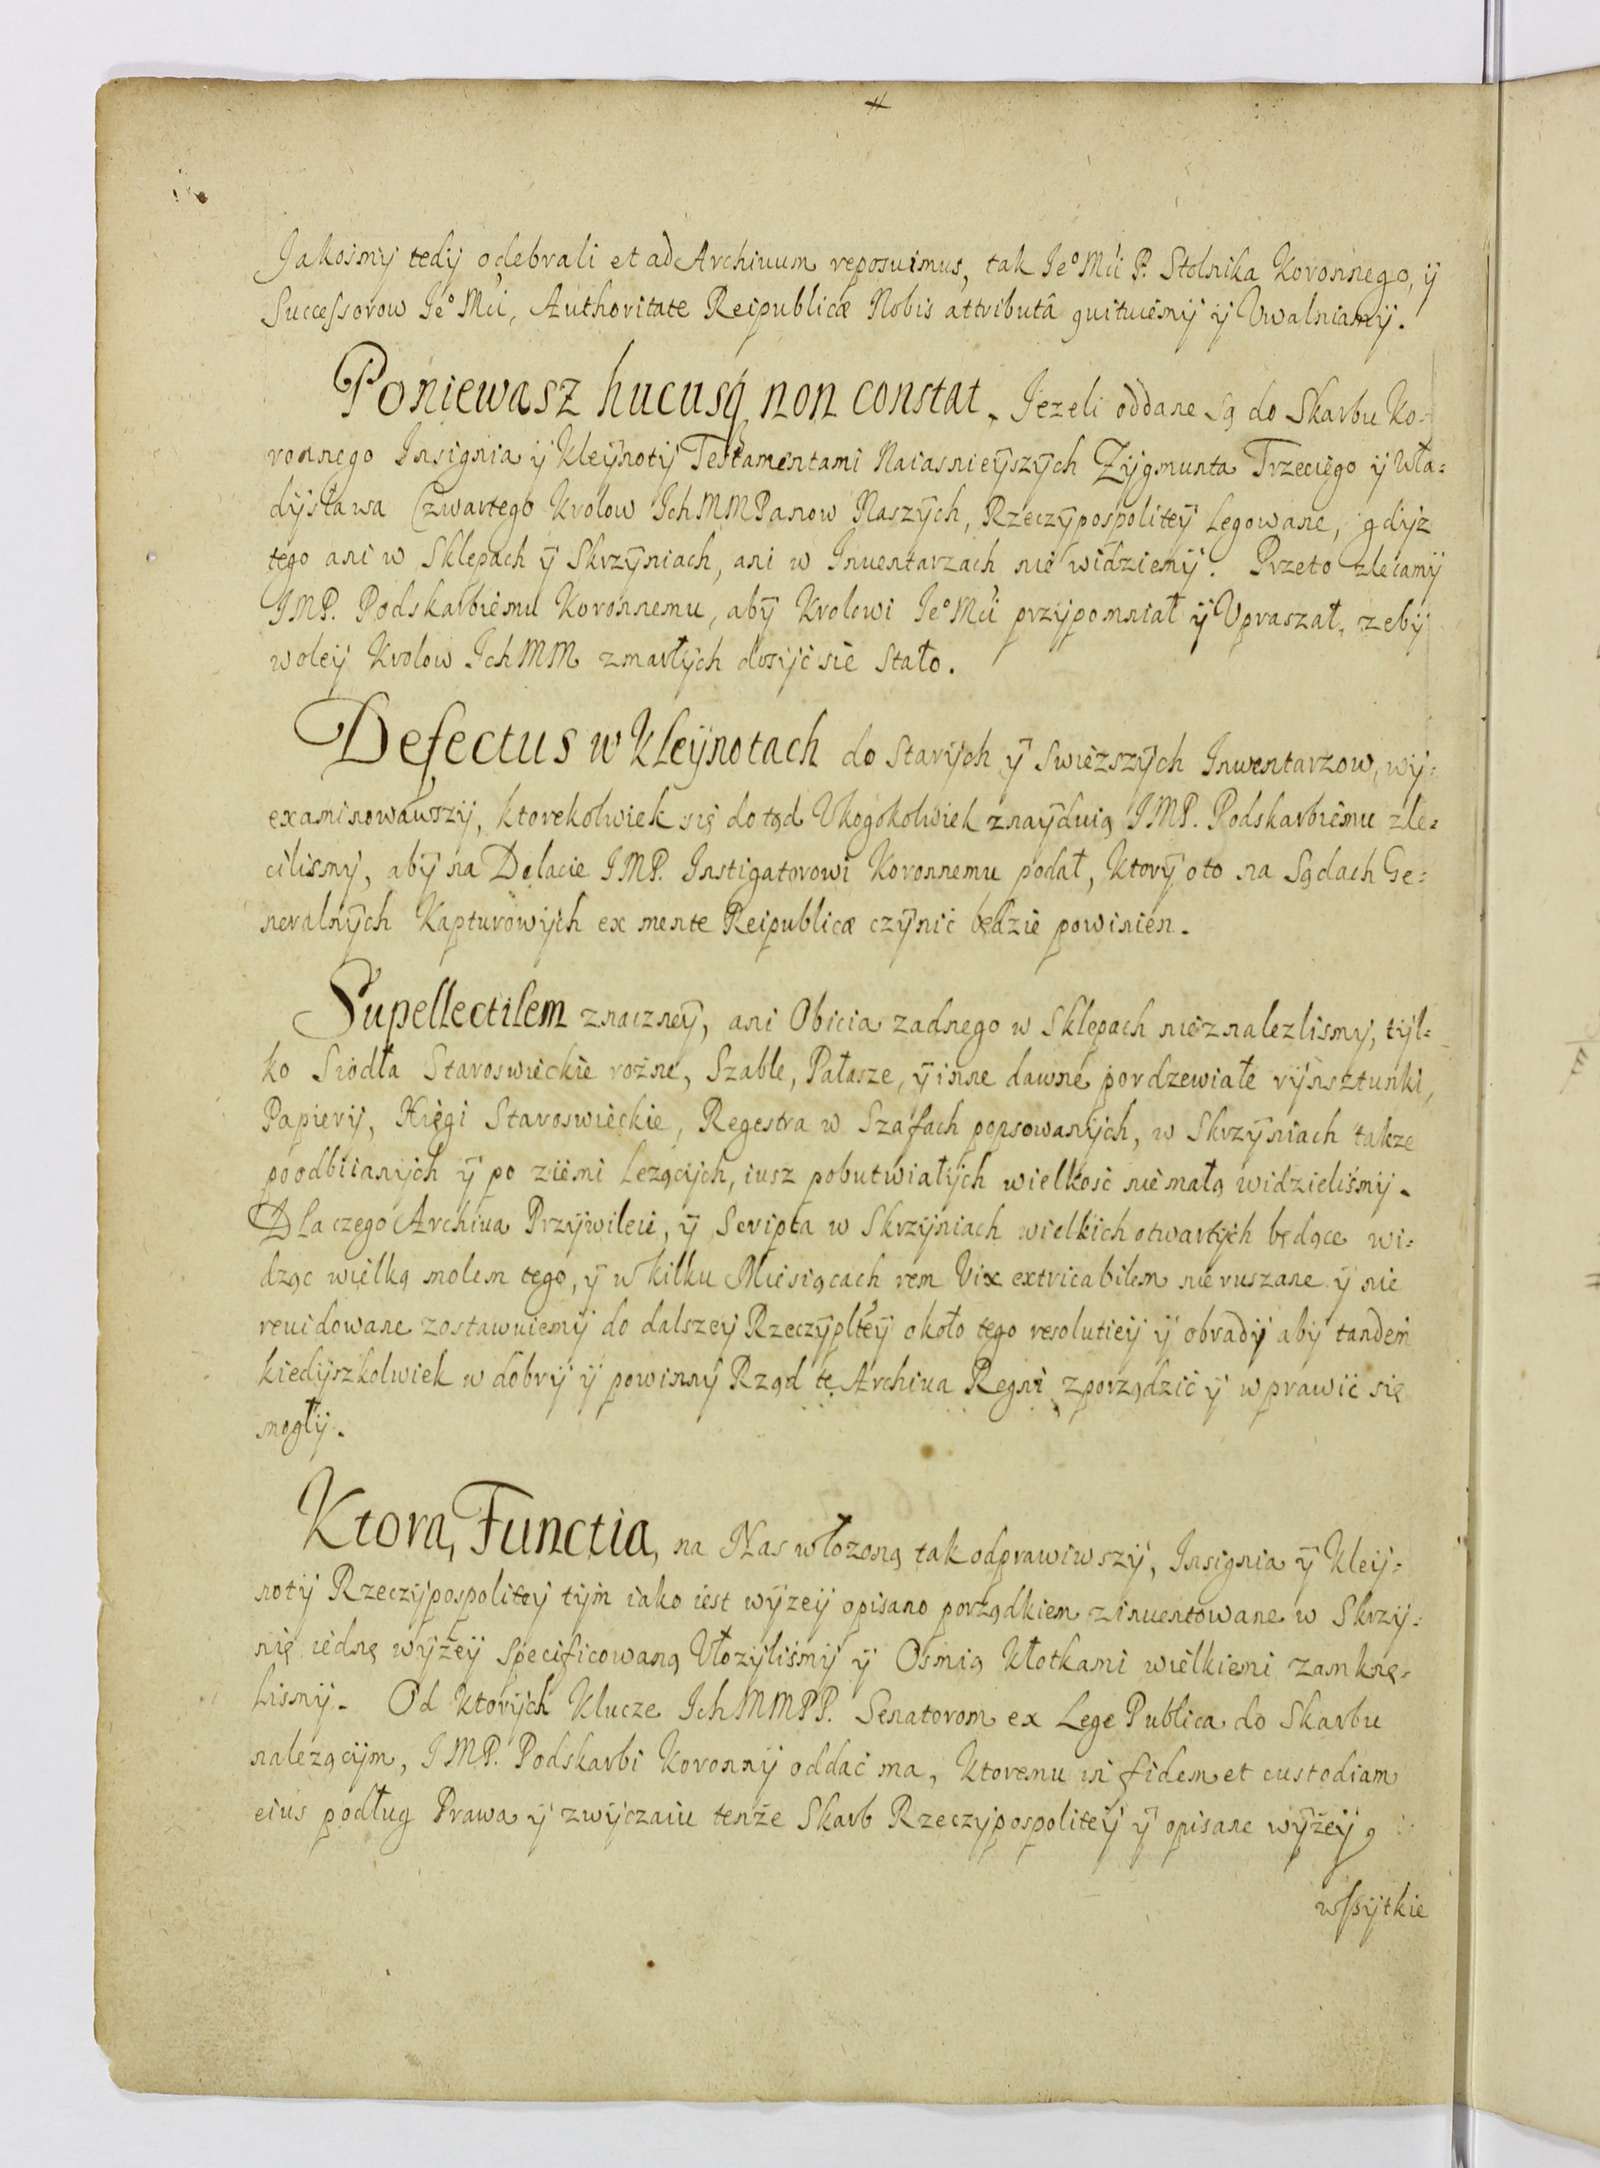 Jakosmy tedy odebrali et ad Archiuum reposuimus, tak Ie° Mći P. Stolnika Koronnego, ÿ
Successorow Ie° Mći, Authoritate Reipublicæ Nobis attributâ quituiemy ÿ Vwalniamy.
Poniewasz hucusq́ non constat, Iezeli oddane są do Skarbu Ko-
ronnego Insignia ÿ Kleÿnoty Testamentami Naiasnieÿszÿch Zÿgmunta Trzeciego ÿ Wła:
dysława Czwartego Krolow Ich MM Panow Naszÿch, Rzeczÿpospoliteÿ Legowane, gdyz
tego ani w Sklepach ÿ Skrzÿniach, ani w Inuentarzach nie widziemy. Przeto zlecamÿ
IMP. Podskarbiemu Koronnemu, abÿ Krolowi Ie° Mći przypomniał ÿ Vpraszał, zeby
woley Krolow Ich MM zmarłych dosyć się Stało.
Defectus w Kleÿnotach do Starych ÿ Swieższÿch Inwentarzow, wy:
examinowawszy, ktorekolwiek się dotąd Vkogokolwiek znaÿduią IMP. Podskarbiemu zle:
cilismy, abÿ na Delacie IMP. Instigatorowi Koronnemu podał, Ktorÿ oto na Sądach Ge:
neralnÿch Kapturowych ex mente Reipublicæ czÿnić będzie powinien.
Supellectilem znaczneÿ, ani Obicia zadnego w Sklepach nieznalezlismy, tyl:
ko Siodła Staroswieckie rożne, Szable, Pałasze, ÿ inne dawne pordzewiałe rÿnsztunki,
Papiery, Xięgi Staroswieckie, Regestra w Szafach popsowanych, w Skrzÿniach takze
poodbiianych ÿ po ziemi leżących, iusz pobutwiałych wielkość niemałą widzieliśmy.
Dla czego Archiua Przÿwileie, ÿ Scripta w Skrzyniach wielkich otwartych będące wi:
dząc wielką molem tego, ÿ w kilku Miesiącach rem Vix extricabilem nie ruszane ÿ nie
reuidowane zostawuiemy do dalszey Rzeczÿpltey około tego resolutiey ÿ obrady aby tandem
kiedyszkolwiek w dobry ÿ powinny Rząd te Archiua Regni zporządzić ÿ wprawić się
mogły.
Ktora, Functia, na Nas włożoną tak odprawiwszy, Insignia ÿ Kley:
noty Rzeczypospolitey tym iako iest wÿzey opisano porządkiem zinuentowane w Skrzy:
nię iednę wyżeÿ Specificowaną Vłozyliśmy ÿ Osmią Kłotkami wielkiemi zamknę:
lismy. Od Ktorych Klucze Ich MMPP. Senatorom ex Lege Publica do Skarbu
należącym, IMP. Podskarbi Koronny oddać ma, Ktoremu in fidem et custodiam
eius podług Prawa ÿ zwyczaiu tenże Skarb Rzeczypospolitey ÿ opisane wÿżey,
wszytkie